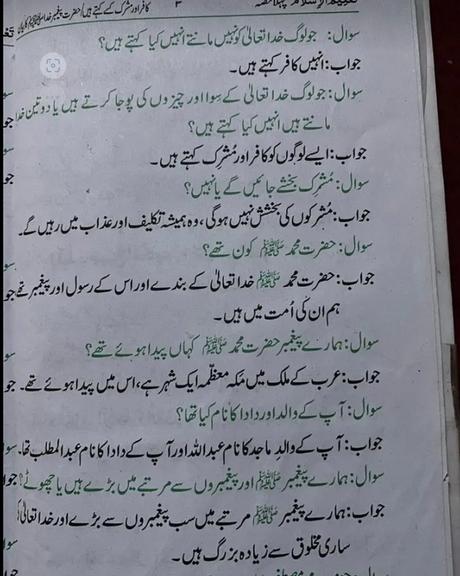 تعلیم الاسلام پہلا حصہ ۳ کافر اور مشرک کسے کہتے ہیں/ حضرت پیغمبر خدا ﷺ کا بیان
سوال: جو لوگ خدا تعالیٰ کو نہیں مانتے انہیں کیا کہتے ہیں؟
جواب: انہیں کافر کہتے ہیں۔
سوال: جو لوگ خدا تعالیٰ کے سوا اور چیزوں کی پوجا کرتے ہیں یا دو تین خدا
مانتے ہیں انہیں کیا کہتے ہیں؟
جواب: ایسے لوگوں کو کافر اور مُشرِک کہتے ہیں۔
سوال: مُشرِک بخشے جائیں گے یا نہیں؟
جواب: مُشرِکوں کی بخشش نہیں ہوگی، وہ ہمیشہ تکلیف اور عذاب میں رہیں گے۔
سوال: حضرت محمد ﷺ کون تھے؟
جواب: حضرت محمد ﷺ خدا تعالیٰ کے بندے اور اس کے رسول اور پیغمبر تھے
ہم ان کی اُمت میں ہیں۔
سوال: ہمارے پیغمبر حضرت محمد ﷺ کہاں پیدا ہوئے تھے؟
جواب: عرب کے ملک میں مکہ معظمہ ایک شہر ہے، اس میں پیدا ہوئے تھے۔
سوال: آپ کے والد اور دادا کا نام کیا تھا؟
جواب: آپ کے والدِ ماجد کا نام عبداللہ اور آپ کے دادا کا نام عبدالمطلب تھا۔
سوال: ہمارے پیغمبر ﷺ اور پیغمبروں سے مرتبے میں بڑے ہیں یا چھوٹے؟
جواب: ہمارے پیغمبر ﷺ مرتبے میں سب پیغمبروں سے بڑے اور خدا تعالیٰ
ساری مخلوق سے زیادہ بزرگ ہیں۔